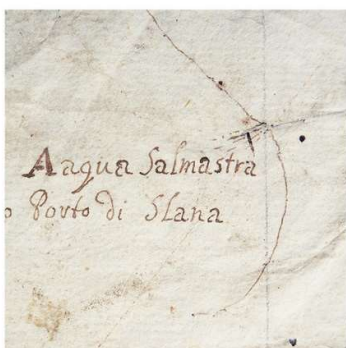 Aaqua Salmastra
o Porto di Slana